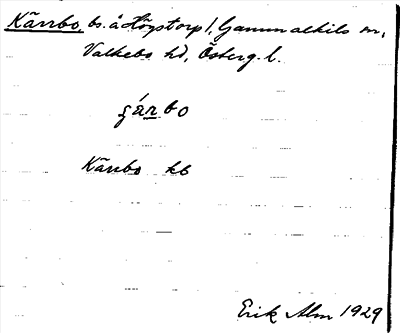 Kärrbo, bs. å Högstorp 1, Gammalkils sn,
Valkebo hd, Österg. l.
çárbo
Kärrbo kb
Erik Alm 1929